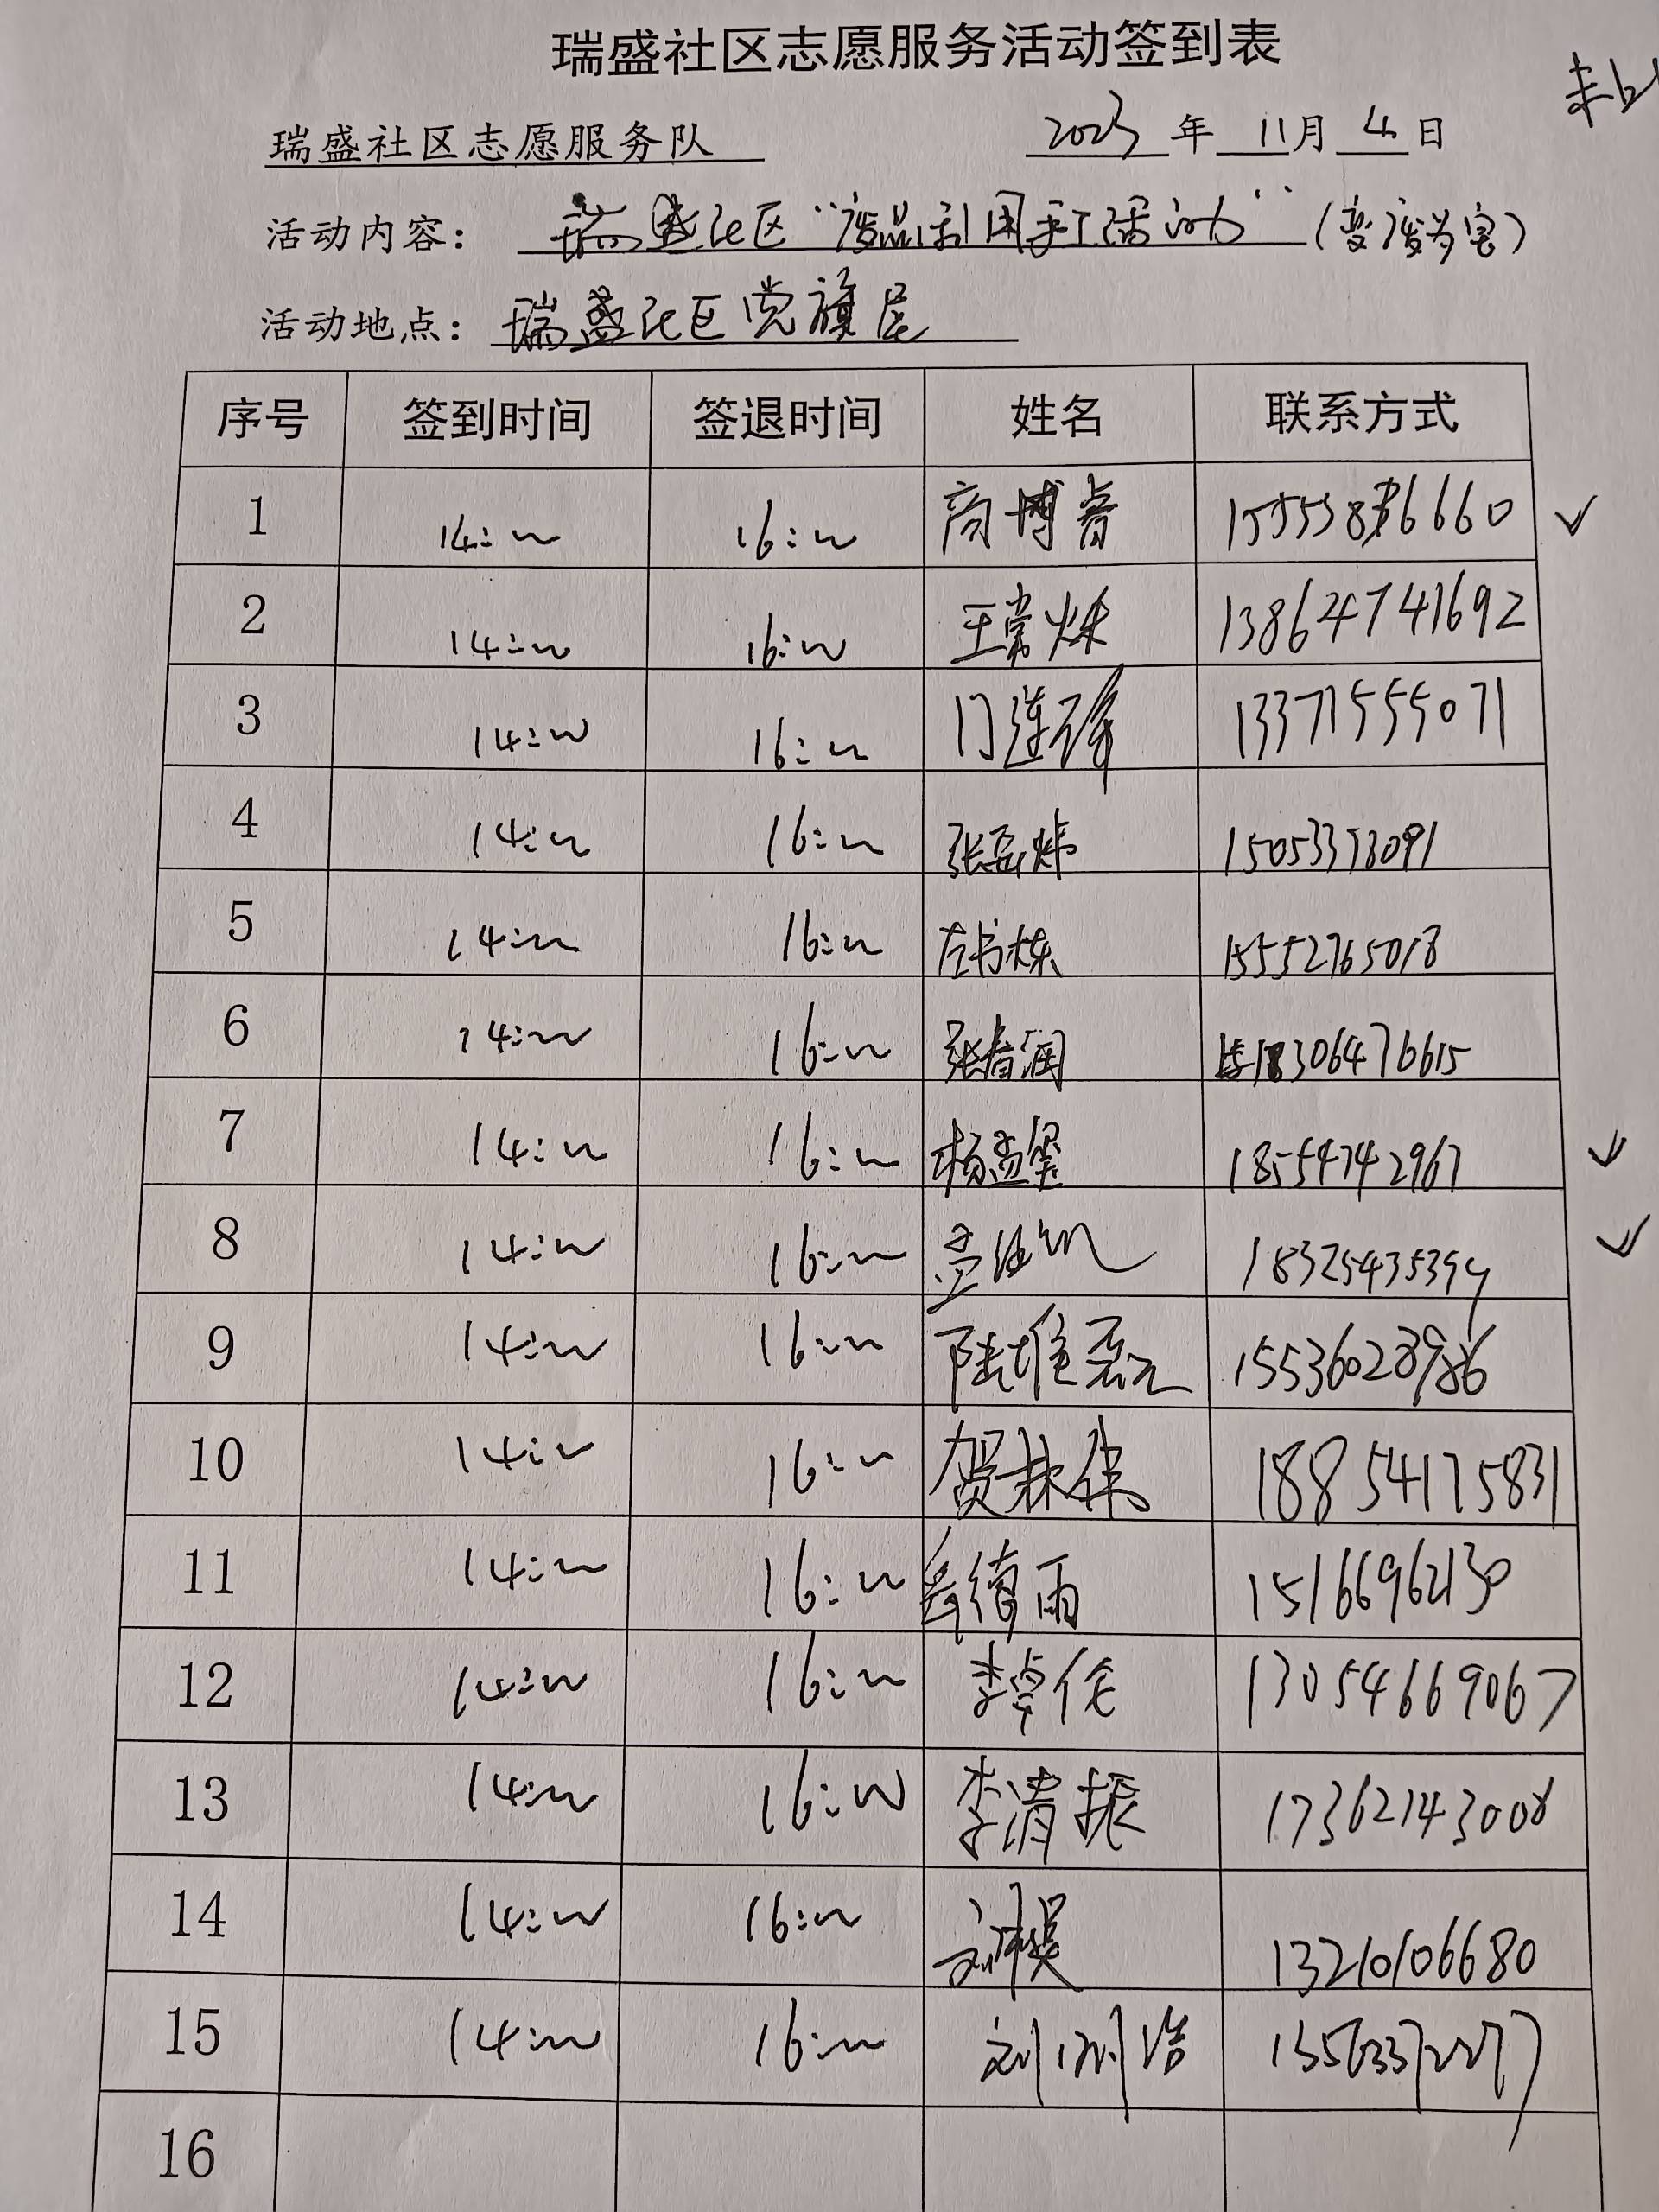 瑞盛社区志愿服务活动签到表
瑞盛社区志愿服务队 2023 年 11 月 4 日
活动内容： 瑞盛社区“废品利用手工活动”（变废为宝）
活动地点： 瑞盛社区党旗居
序号 签到时间 签退时间 姓名 联系方式
1 14:00 16:00 商博
2 14:00 16:00 王常烁 13864741692
3 14:00 16:00 门连 13371555071
4 14:00 16:00 张 炜 15053373091
5 14:00 16:00 左书炼 15552765018
6 14:00 16:00 张春润 18306476615
7 14:00 16:00 杨孟玺 18554742967
8 14:00 16:00 孟 18325435399
9 14:00 16:00 陆 15536028986
10 14:00 16:00 贺 18854175831
11 14:00 16:00 岳德雨 15166962130
12 14:00 16:00 李卓伦 13054669067
13 14:00 16:00 李清振 17362143008
14 14:00 16:00 刘 昊 13210106680
15 14:00 16:00 刘 浩
16